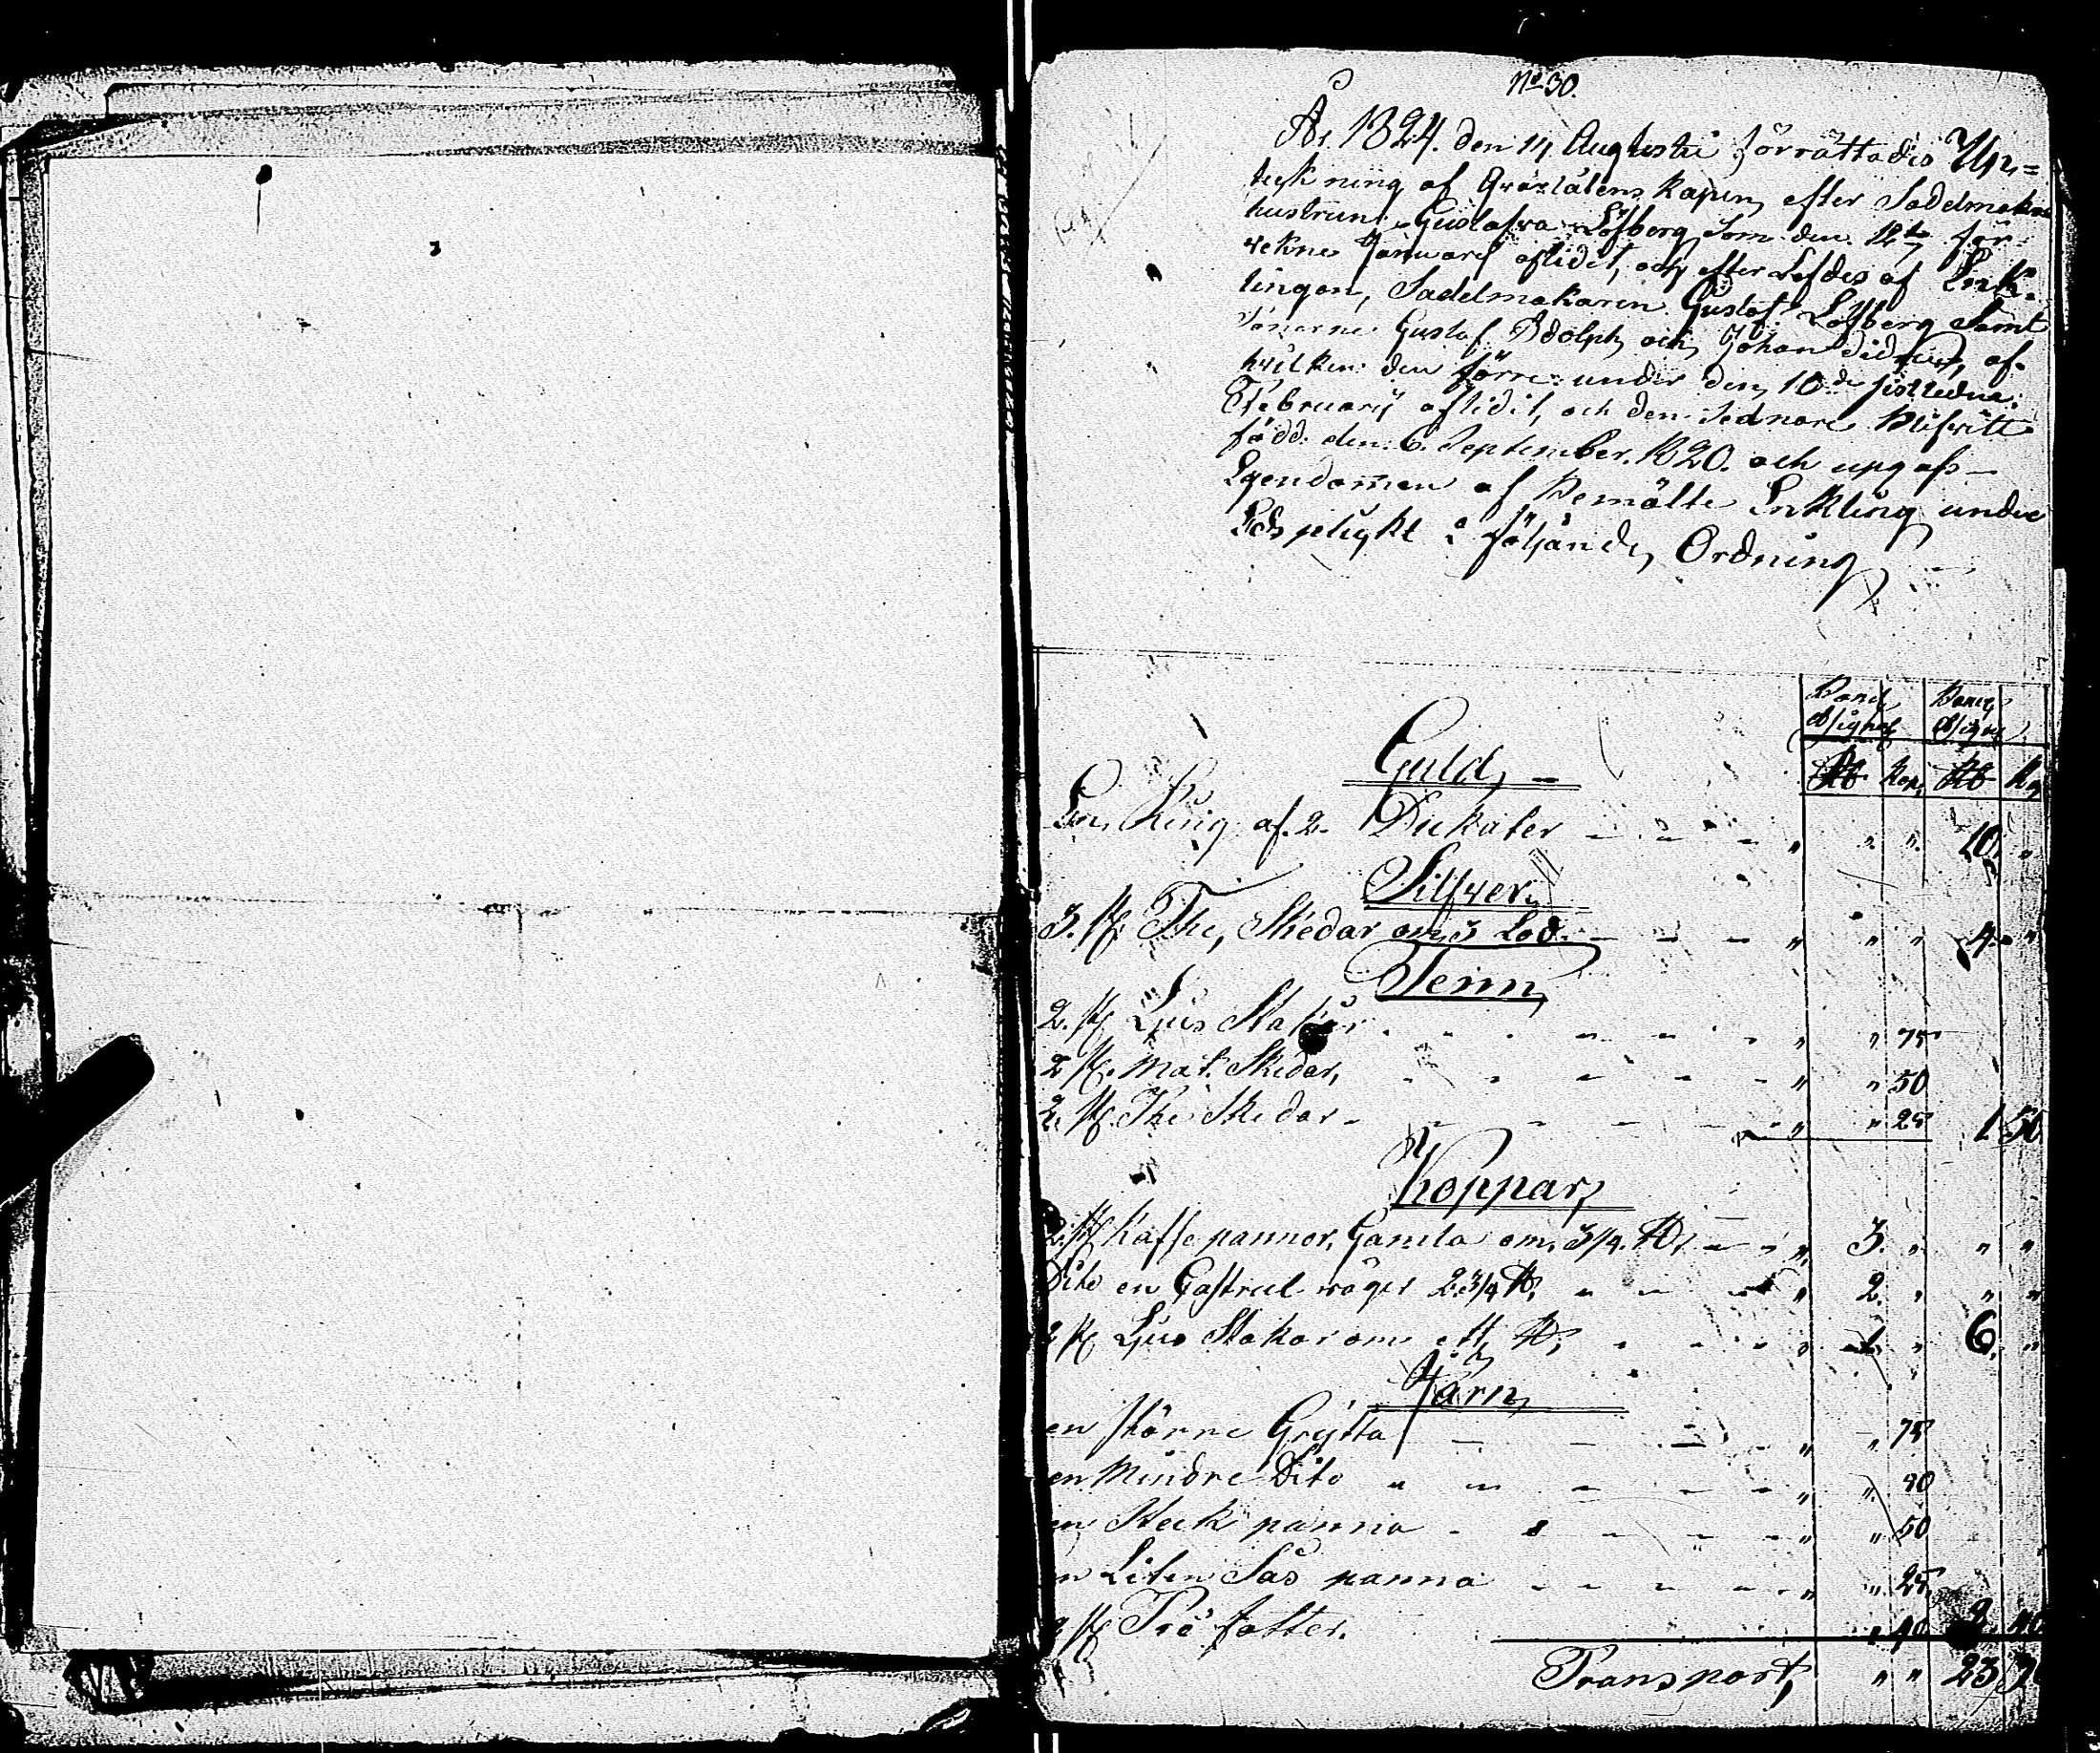 No 30.
År 1824. den 14 Augustii förrättades Up=
teckning af Qvarlåtenskapen efter Sadelmakare
hustrun Gustafva Löfberg, Som den 12te
Januarij aflidit, och efter Lefdes af Enk=
lingen, Sadelmakaren Gustaf Löfberg Samt
Sönerne Gustaf Adolph och Johan af
hvilken den förre under den 10de sistledne
Februarij aflidit, och den Sednare blifvitt
född den 6. September. 1820. och upgafs
Egendomen af Bemälte Enkling under
Eds plickt i följande Ordning
Banco Assignat Banco Assign
Rb Kop. Rb Kop
Guld,
En Ring af 2. Dukater - - - " " " 10 "
Silfver
3. st The, Skedar om 3 Lod. - - - " " " 4 "
Tenn,
2. st Ljus Stakar . . . " " 75
2 st. Mat. Skedar, - - - " " 50
2. st. The Skedar - - - " " 25 1 50
Koppar,
2. st Kaffe pannor, Gamla om, 3/4. ℔, - - " 3. " " "
Dito en Castrul väger 2 3/4 ℔, - - " 2. " " "
2 st Ljus Stakar om ett ℔, . . . " 1 " 6. "
Järn,
en större Grytta - - - " " 75
en Mindre Dito " - - - " " 40
en Steck panna - - - " " 50
en Liten Sås panna - - - " " 25
2 st Tre fötter. " 40 2
Transport, " " 23